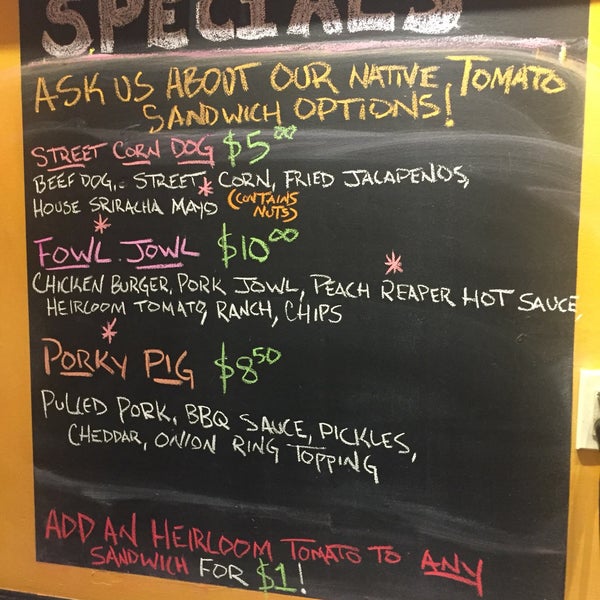 SPECIALS
ASK US ABOUT OUR NATIVE TOMATO
SANDWICH OPTIONS!
STREET CORN DOG $5.00
BEEF DOG, STREET CORN, FRIED JALAPENOS,
HOUSE SRIRACHA MAYO * (CONTAINS
NUTS)
*
FOWL JOWL $10.00
*
CHICKEN BURGER, PORK JOWL, PEACH REAPER HOT SAUCE,
HEIRLOOM TOMATO, RANCH, CHIPS
*
PORKY PIG $8.50
PULLED PORK, BBQ SAUCE, PICKLES,
CHEDDAR, ONION RING TOPPING
ADD AN HEIRLOOM TOMATO TO ANY
SANDWICH FOR $1!